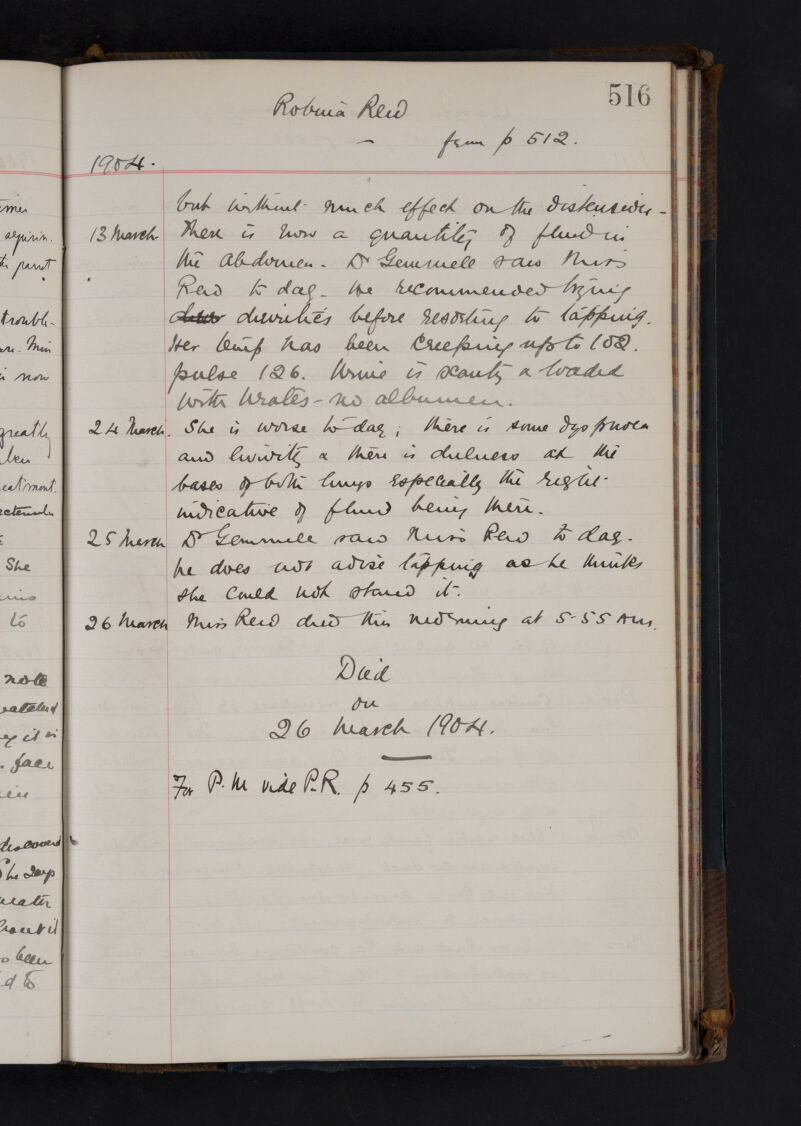 516
Robina Reid
from p 512.
1904.
but without much effect on the distension -
13 March There is now a quantity of fluid in
the abdomen. Dr Gemmell saw Miss
Reid to day. He recommended trying
diuretics before resorting to tapping.
Her temp has been creeping up to 102.
pulse 126. Urine is scanty & loaded
with Urates - no albumen.
24 March. She is worse to day; there is some dyspnoea
and lividity & there is dulness at the
bases of both lungs especially the right
indicative of fluid being there.
25 March Dr Gemmell saw Miss Reid to day.
he does not advise tapping as he thinks
she could not stand it.
26 March Miss Reid died this morning at 5-55 Am.
Died
on
26 March 1904.
For P.M vide P.R. p 455.